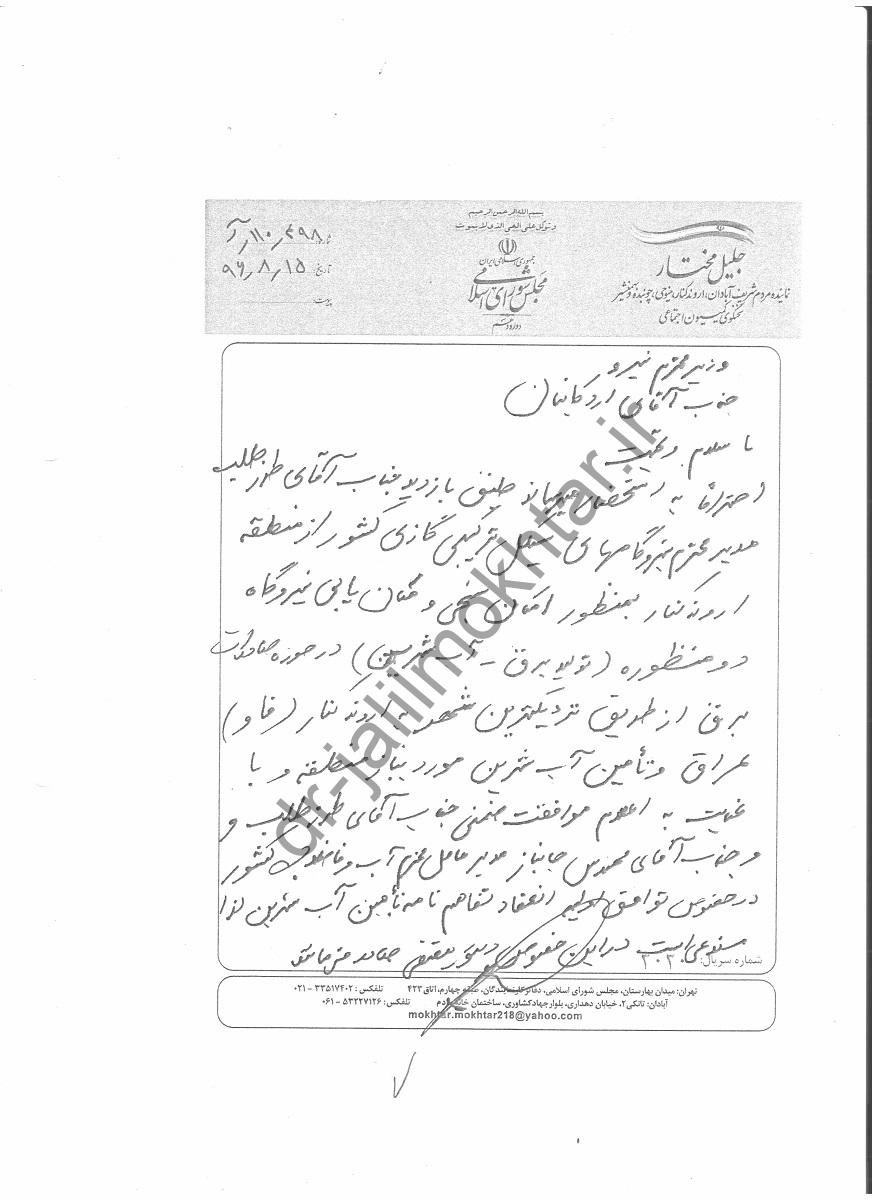 بسم الله الرحمن الرحیم
و توکل علی الحی الذی لا یموت
جمهوری اسلامی ایران
مجلس شورای اسلامی
دوره دهم
جلیل مختار
نماینده مردم شریف آبادان، اروندکنار، مینوی، چوئبده و بهمنشیر
سخنگوی کمیسیون اجتماعی
تاریخ ۹۶٫۸٫۱۵
پیوست
وزیر محترم نیرو
جناب آقای اردکانیان
با سلام و تحیت
احتراماً به استحضار میرساند طبق بازدید جناب آقای طرز طلب
مدیر محترم نیروگاههای سیکل ترکیبی گازی کشور از منطقه
اروندکنار بمنظور امکان سنجی و مکان یابی نیروگاه
دو منظوره (تولید برق - آب شیرین) در حوزه صادرات
برق از طریق نزدیکترین شهر به اروندکنار (فاو)
عراق و تأمین آب شیرین مورد نیاز منطقه و با
عنایت به اعلام موافقت ضمنی جناب آقای طرز طلب و
و جناب آقای مهندس جانباز مدیر عامل محترم آب و فاضلاب کشور
در خصوص توافق اولیه انعقاد تفاهم نامه تأمین آب شیرین لذا
مستدعی است در این خصوص دستور مقتضی صادر فرمائید
شماره سریال: ۳۰۳۰
تهران: میدان بهارستان، مجلس شورای اسلامی، دفاتر نمایندگان، طبقه چهارم، اتاق ۴۲۳ تلفکس: ۳۳۵۱۷۴۰۲ - ۰۲۱
آبادان: تانکی۲، خیابان دهداری، بلوار جهاد کشاوری، ساختمان خانه مردم تلفکس: ۵۳۲۲۷۱۲۶ - ۰۶۱
mokhtar.mokhtar218@yahoo.com
dr-jalilmokhtar.ir